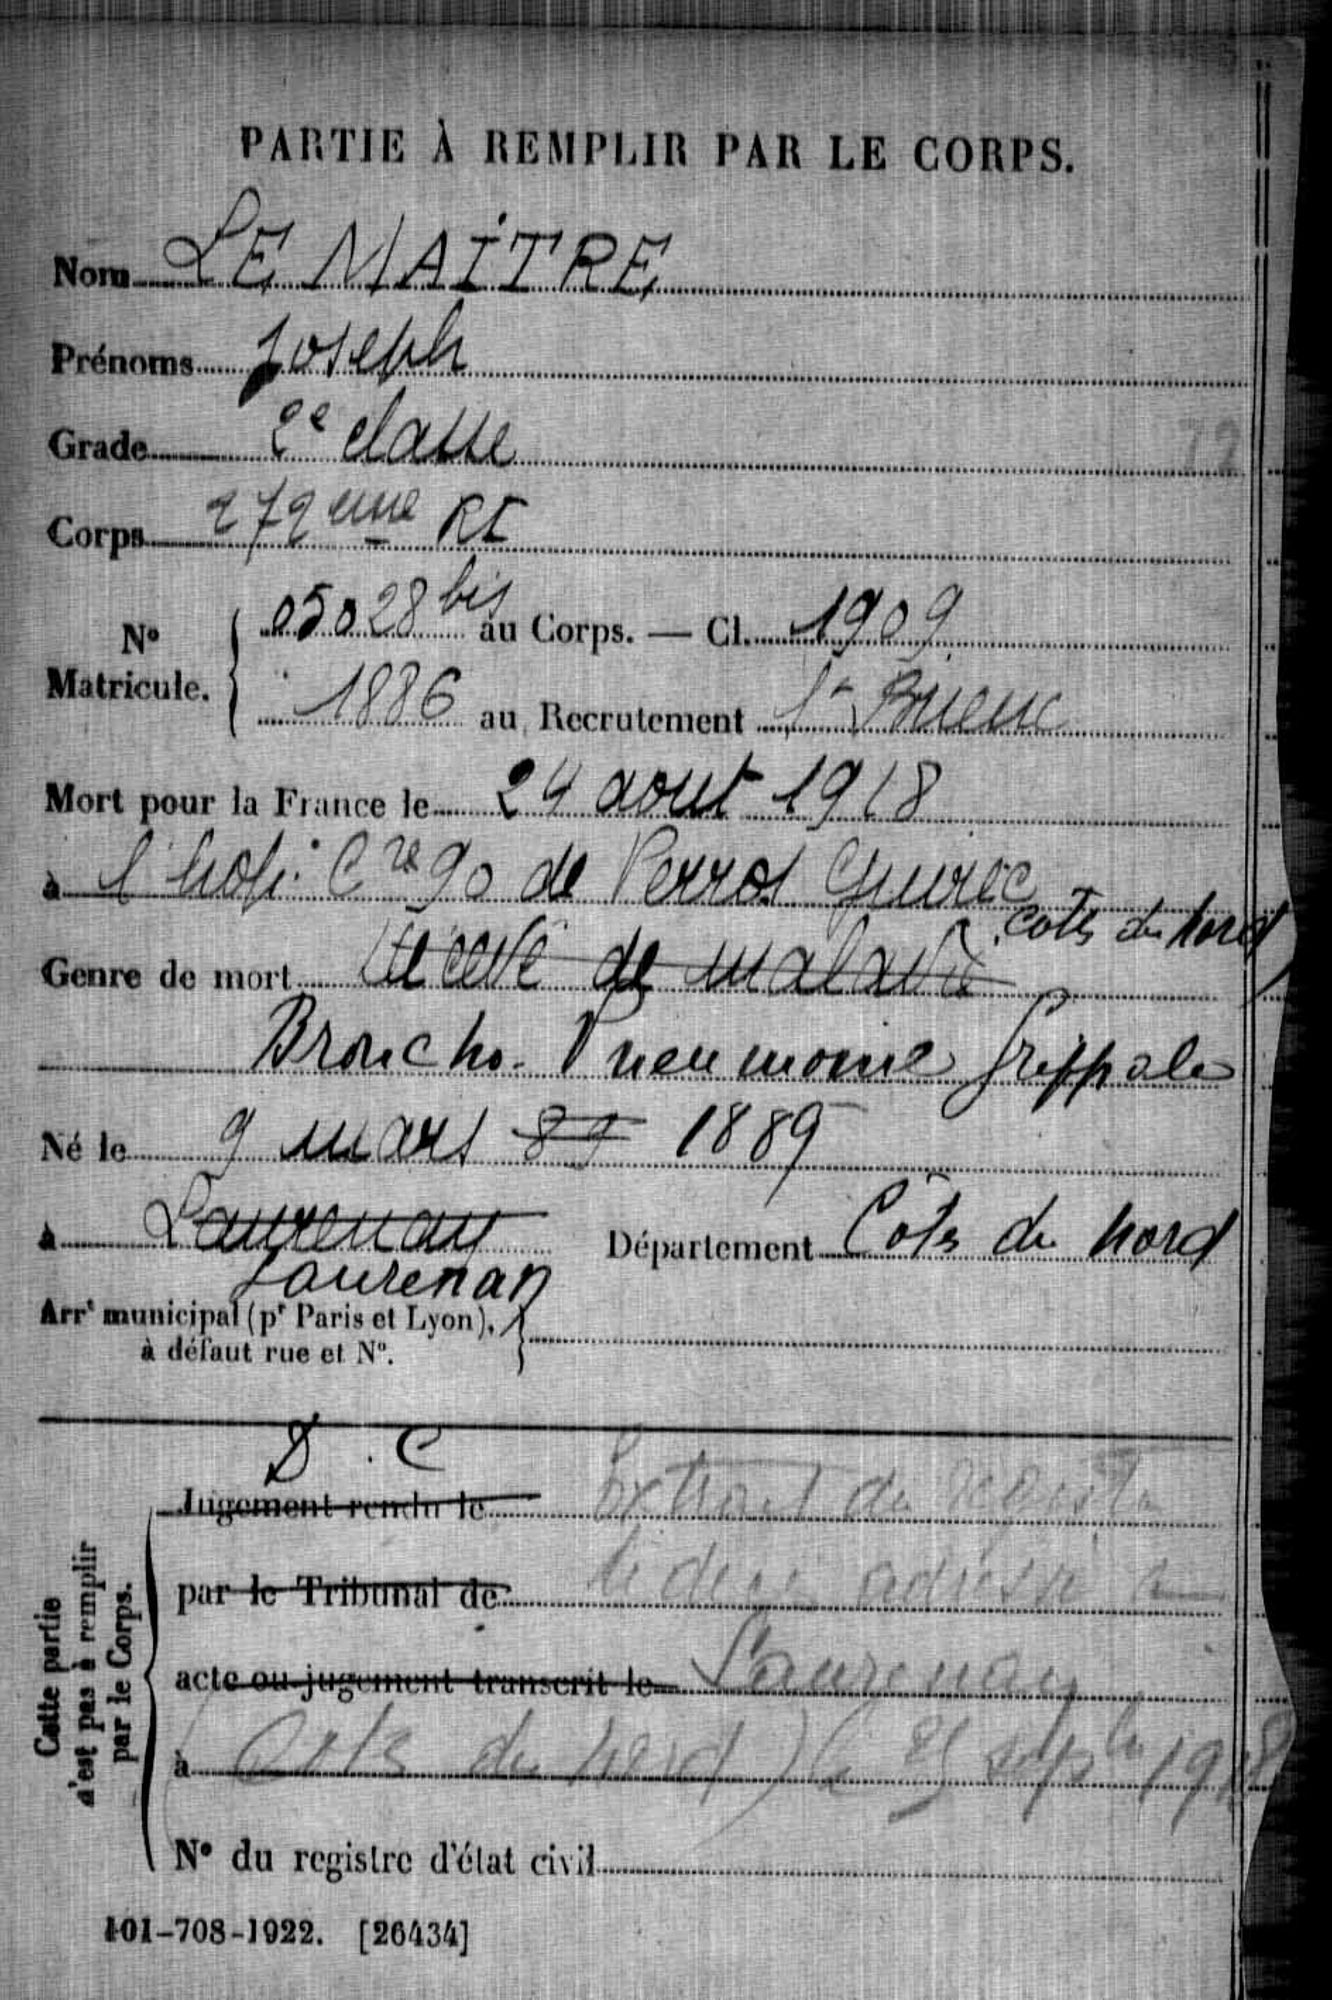 PARTIE À REMPLIR PAR LE CORPS.
Nom LE MAITRE
Prénoms Joseph
Grade 2e classe
Corps 272eme RI
No Matricule. 05028 bis au Corps. — Cl. 1909
1886 au Recrutement St Brieuc
Mort pour la France le 24 aout 1918
à l'hop. Cre 90 de Perros Guirec
Cotes du Nord
Genre de mort décédé de maladie
Broncho-Pneumonie Grippale
Né le 9 mars 89 1889
à Laurenay Département Côtes du Nord
Laurenan
Arrt municipal (pr Paris et Lyon),
à défaut rue et No.
D. C
Cette partie n'est pas à remplir par le Corps.
Jugement rendu le Extrait du registre
par le Tribunal de de décès adressé à
acte ou jugement transcrit le Laurenay
à Cotes du Nord) le 25 sept 1918
No du registre d'état civil
101-708-1922. [26434]